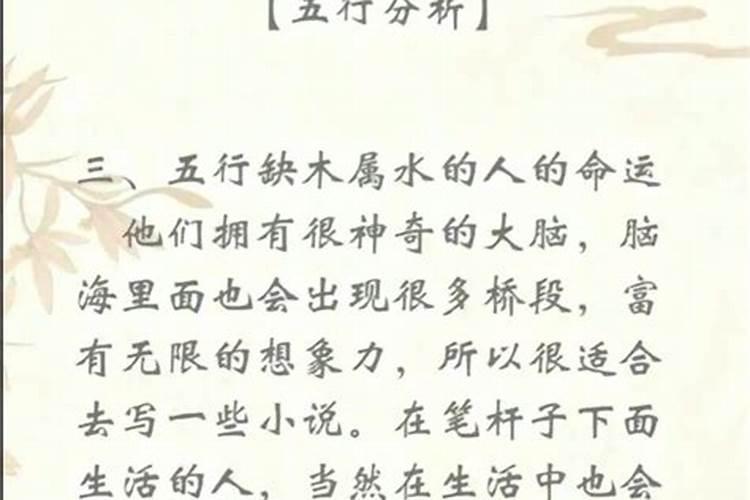 【五行分析】
三、五行缺木属水的人的命运
他们拥有很神奇的大脑，脑
海里面也会出现很多桥段，富
有无限的想象力，所以很适合
去写一些小说。在笔杆子下面
生活的人，当然在生活中也会